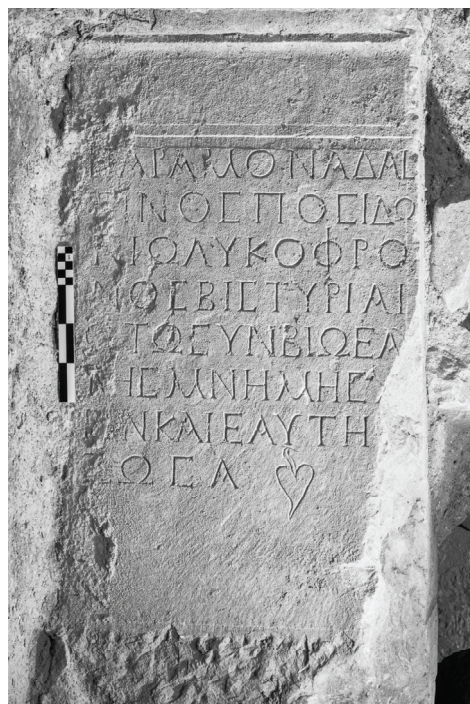 ΠΑΡΑΜΟΝΑΔΑΕ
ΠΙΝΟΣΠΟΣΙΔΩ
ΝΙΩΛΥΚΟΦΡΟ
ΝΟΣΒΙΣΤΥΡΙΑΙ
ΤΩΣΥΝΒΙΩΕΑ
ΗΣΜΝΗΜΗΣ
ΙΝΚΑΙΕΑΥΤΗ
ΖΩΣΑ